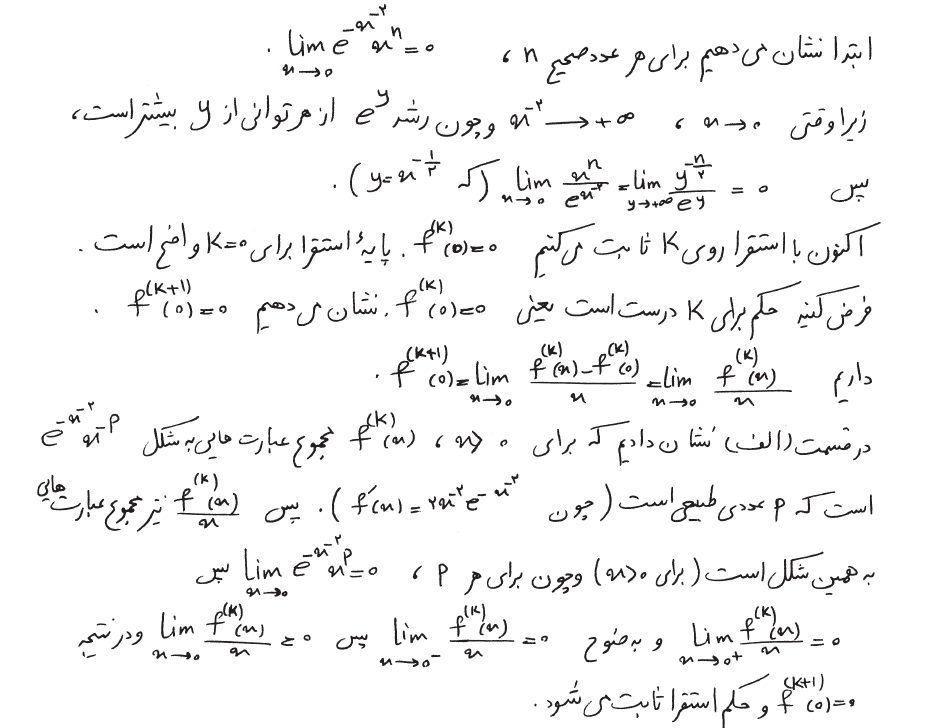 ابتدا نشان می‌دهیم برای هر عدد صحیح n ، lim_{x→0} e^{-x^{-۲}} x^n = 0 .
زیرا وقتی x→0 ، x^{-۲} → +∞ و چون رشد e^y از هر توانی از y بیشتر است،
پس lim_{x→0} x^n / e^{x^{-۲}} = lim_{y→+∞} y^{-n/۲} / e^y = 0 (که y = x^{-۱/۲}) .
اکنون با استقرا روی K ثابت می‌کنیم f^{(K)}(0)=0 . پایهٔ استقرا برای K=0 واضح است .
فرض کنید حکم برای K درست است یعنی f^{(K)}(0)=0 . نشان می‌دهیم f^{(K+1)}(0)=0 .
داریم f^{(K+1)}(0) = lim_{x→0} (f^{(K)}(x) - f^{(K)}(0)) / x = lim_{x→0} f^{(K)}(x) / x .
در قسمت (الف) نشان دادیم که برای x>0 ، f^{(K)}(x) مجموع عبارت‌هایی به شکل e^{-x^{-۲}} x^{-P}
است که P عددی طبیعی است (چون f′(x) = ۲x^{-۲} e^{-x^{-۲}}) . پس f^{(K)}(x) / x نیز مجموع عبارت‌هایی
به همین شکل است (برای x>0) و چون برای هر P ، lim_{x→0} e^{-x^{-۲}} x^P = 0 پس
lim_{x→0+} f^{(K)}(x) / x = 0 و به وضوح lim_{x→0-} f^{(K)}(x) / x = 0 پس lim_{x→0} f^{(K)}(x) / x = 0 و در نتیجه
f^{(K+1)}(0)=0 و حکم استقرا ثابت می‌شود .